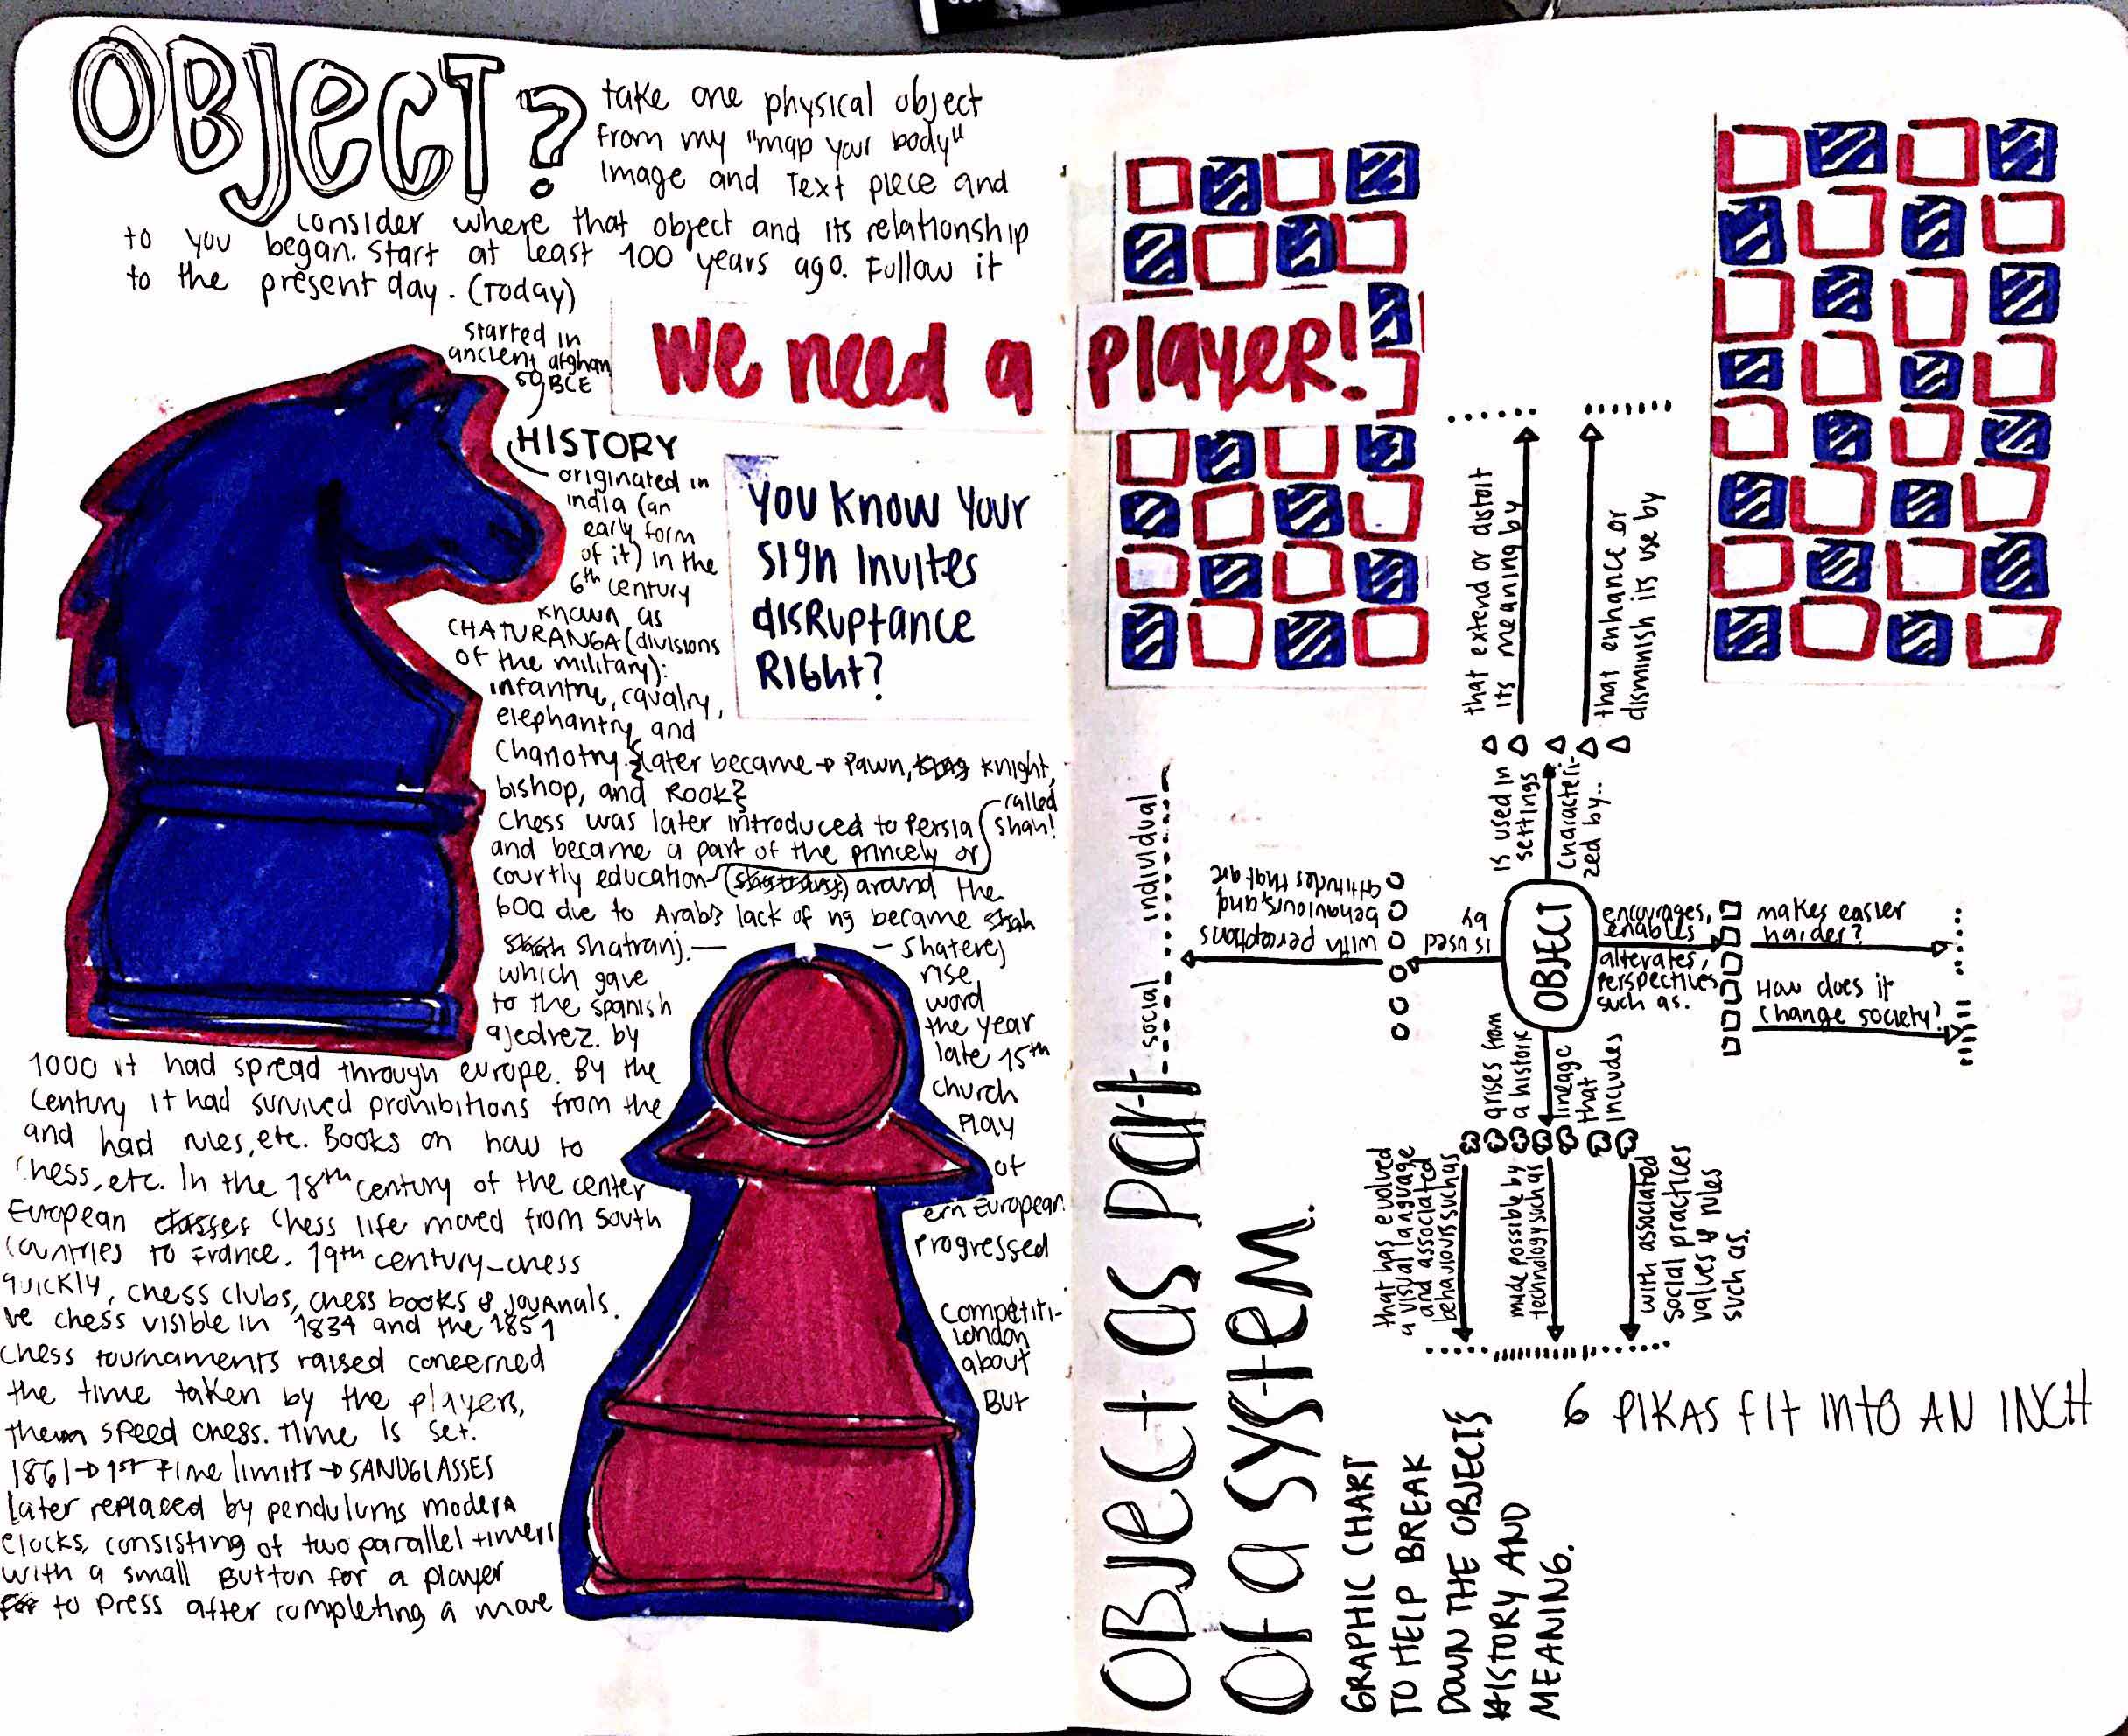 OBJECT?
take one physical object
from my "map your body"
Image and Text piece and
consider where that object and its relationship
to you began. Start at least 100 years ago. Follow it
to the present day. (Today)
started in
ancient afghan
50 BCE
HISTORY
originated in
india (an
early form
of it) in the
6th century
known as
CHATURANGA (divisions
of the military):
infantry, cavalry,
elephantry and
Chariotry. {later became → Pawn, knight,
bishop, and ROOK}
chess was later introduced to Persia
called
shah!
and became a part of the princely or
courtly education around the
600 due to Arabs lack of ng became
shatranj. — – shaterej
which gave rise
to the spanish word
ajedrez. by the year
1000 it had spread through europe. By the late 15th
century it had survived prohibitions from the church
and had rules, etc. Books on how to play
chess, etc. In the 18th century of the center of
European chess life moved from south ern European
countries to France. 19th century – chess progressed
quickly, chess clubs, chess books & journals. Competiti-
ve chess visible in 1834 and the 1851 London
chess tournaments raised concerned about
the time taken by the players, But
them speed chess. time is set.
1861 → 1st time limits → SANDGLASSES
later replaced by pendulums modern
clocks, consisting of two parallel timers
with a small Button for a player
to press after completing a move
We need a player!
You know your
sign invites
disruptance
Right?
Object as part
of a system.
GRAPHIC CHART
TO HELP BREAK
DOWN THE OBJECTS
HISTORY AND
MEANING.
OBJECT
is used in
settings
characteri-
zed by..
that extend or distort
its meaning by
that enhance or
disminish its use by
is used
by
with perceptions
behaviours, and
attitudes that are
social individual
encourages,
enables
alterates,
perspectives
such as.
makes easier
harder?
How does it
change society?
arises from
a historic
lineage
that
includes
that has evolved
a visual language
and associated
behaviours such as
made possible by
technology such as
with associated
social practices
values & rules
such as.
6 PIKAS FIT INTO AN INCH